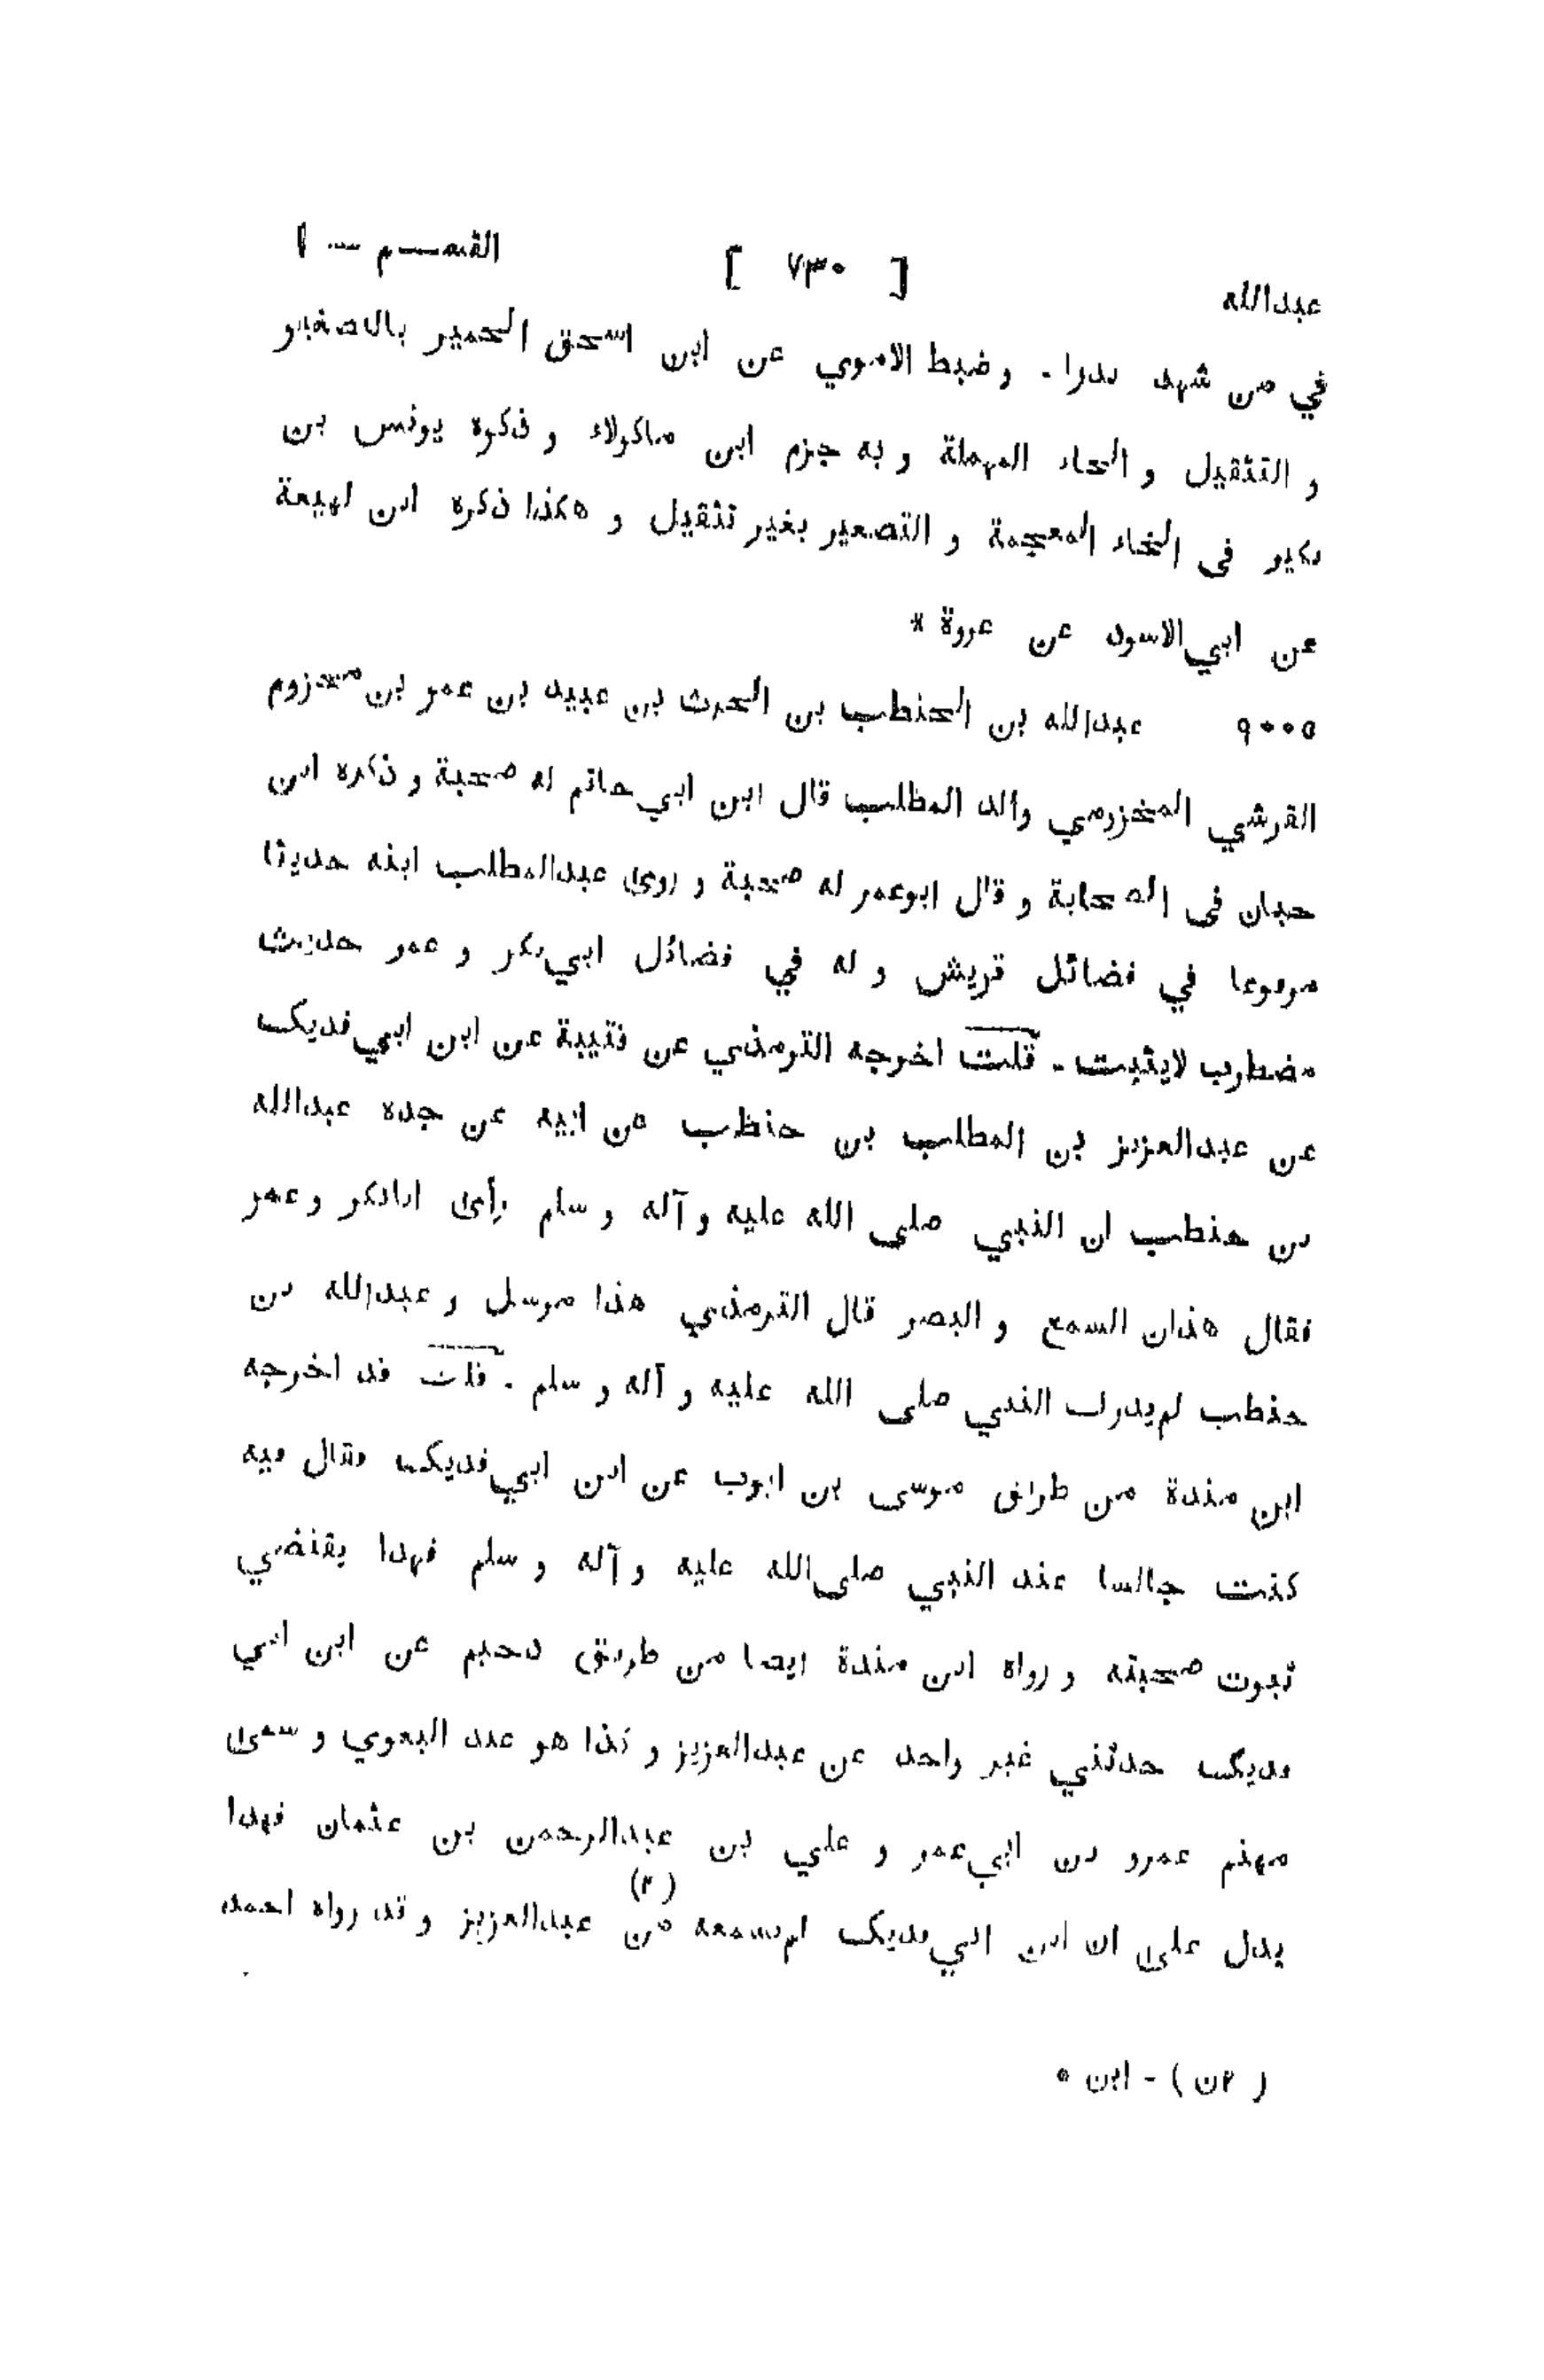 عبدالله [ ٧٣٠ ] القسم — ١
في من شهد بدرا . و ضبط الاموي عن ابن اسحق الحمير بالتصغير
و التثقيل و الحاء المهملة و به جزم ابن ماكولاء و ذكره يونس بن
بكير في الخاء المعجمة و التصغير بغير تثقيل و هكذا ذكره ابن لهيعة
عن ابي الاسود عن عروة *
٩٠٠٥ عبدالله بن الحنطب بن الحرث بن عبيد بن عمر بن مخزوم
القرشي المخزومي والد المطلب قال ابن ابي حاتم له صحبة و ذكره ابن
حبان في الصحابة و قال ابوعمر له صحبة و روى عبدالمطلب ابنه حديثا
مرفوعا في فضائل قريش و له في فضائل ابي بكر و عمر حديث
مضطرب لايثبت . قلت اخرجه الترمذي عن قتيبة عن ابن ابي فديك
عن عبدالعزيز بن المطلب بن حنطب عن ابيه عن جده عبدالله
بن حنطب ان النبي صلى الله عليه و آله و سلم رأى ابابكر و عمر
فقال هذان السمع و البصر قال الترمذي هذا مرسل و عبدالله بن
حنطب لم يدرك النبي صلى الله عليه و آله و سلم . قلت قد اخرجه
ابن مندة من طريق موسى بن ايوب عن ابن ابي فديك فقال فيه
كنت جالسا عند النبي صلى الله عليه و آله و سلم فهذا يقتضي
ثبوت صحبته و رواه ابن مندة ايضا من طريق دحيم عن ابن ابي
فديك حدثني غير واحد عن عبدالعزيز و كذا هو عند البغوي و سمى
منهم عمرو بن ابي عمر و علي بن عبدالرحمن بن عثمان فهذا
يدل على ان ابن ابي فديك لم يسمعه من (٢) عبدالعزيز و قد رواه احمد
( ٢ن ) - ابن *